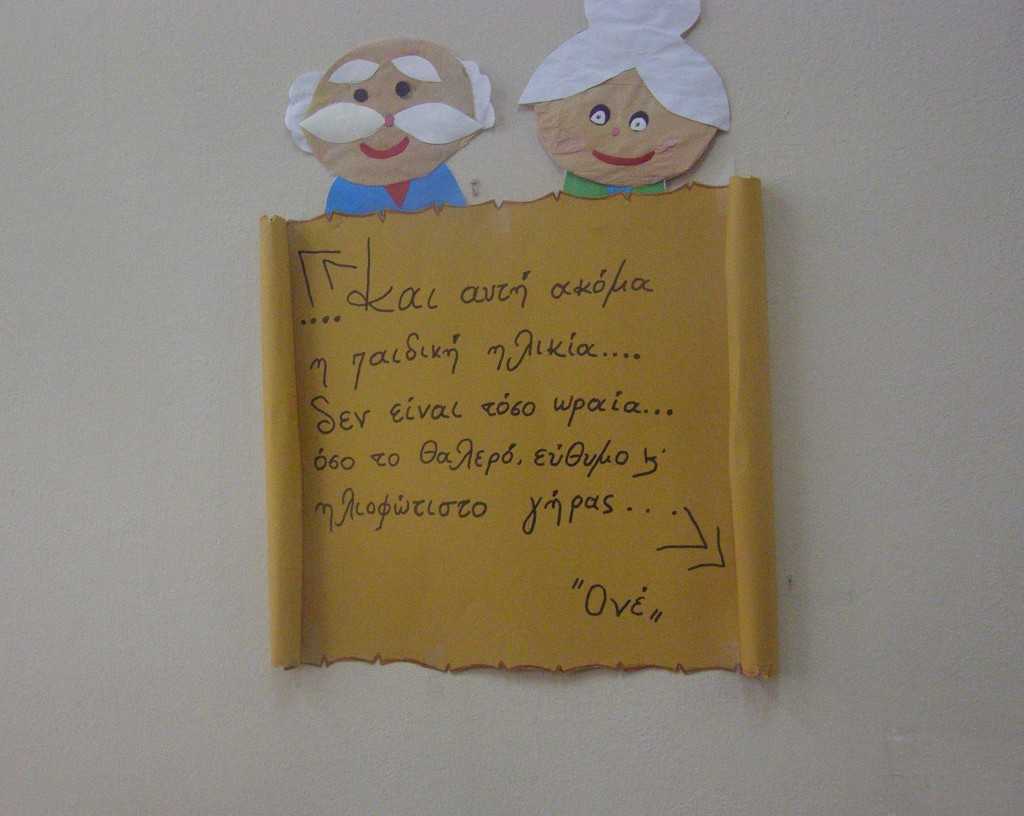 «....Και αυτή ακόμα
η παιδική ηλικία....
δεν είναι τόσο ωραία...
όσο το θαλερό, εύθυμο κ'
ηλιοφώτιστο γήρας....»
"Ονέ„